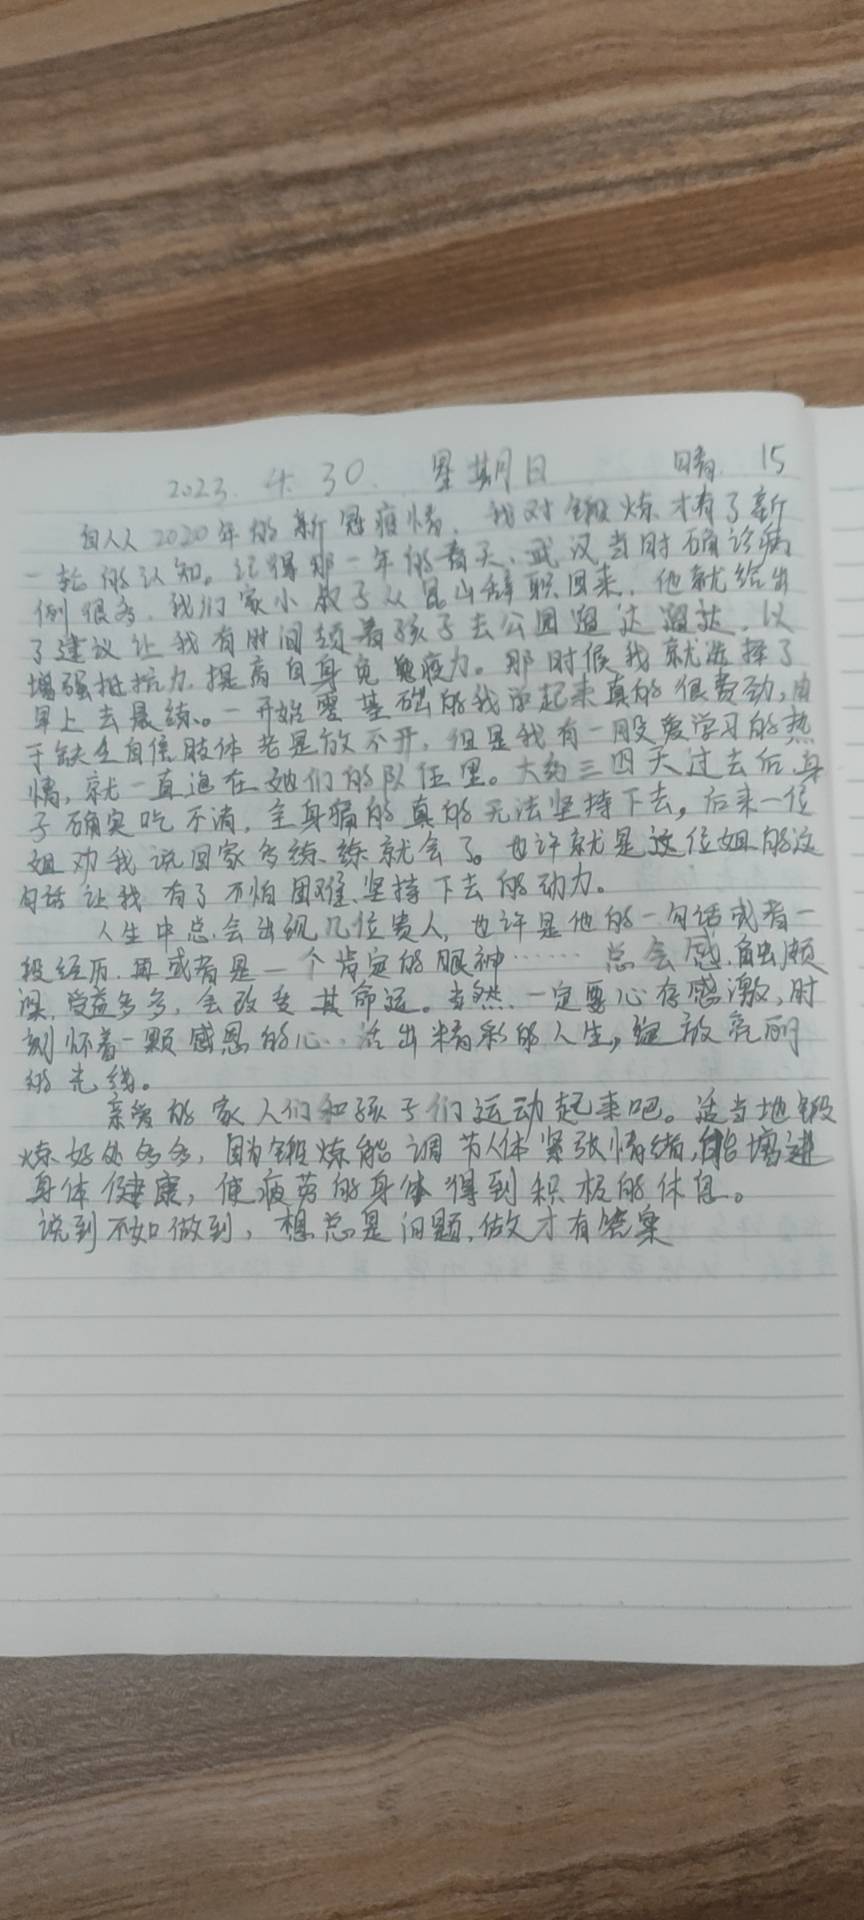 2023. 4. 30. 星期日 晴. 15
自从 2020年的新冠疫情, 我对锻炼才有了新
一轮的认知。记得那一年的春天、武汉当时确诊病
例很多, 我们家小叔子从昆山辞职回来, 他就给出
了建议让我有时间领着孩子去公园遛达遛达, 以
增强抵抗力, 提高自身免疫力。那时候我就选择了
早上去晨练。一开始零基础的我 起来真的很费劲,由
于缺乏自信肢体老是放不开, 但是我有一股爱学习的热
情, 就一直追在她们的队伍里。大约三四天过去后身
子确实吃不消, 全身痛的真的无法坚持下去, 后来一位
姐劝我说回家多练练就会了。也许就是这位姐的这
句话让我有了不怕困难、坚持下去的动力。
人生中总会出现几位贵人, 也许是他的一句话或者一
段经历. 再或者是一个肯定的眼神…… 总会感触颇
深, 受益多多, 会改变其命运。当然, 一定要心存感激, 时
刻怀着一颗感恩的心.. 活出精彩的人生, 绽放亮丽
的光线。
亲爱的家人们和孩子们运动起来吧。适当地锻
炼好处多多, 因为锻炼能调节人体紧张情绪,能增进
身体健康, 使疲劳的身体得到积极的休息。
说到不如做到, 想总是问题, 做才有答案